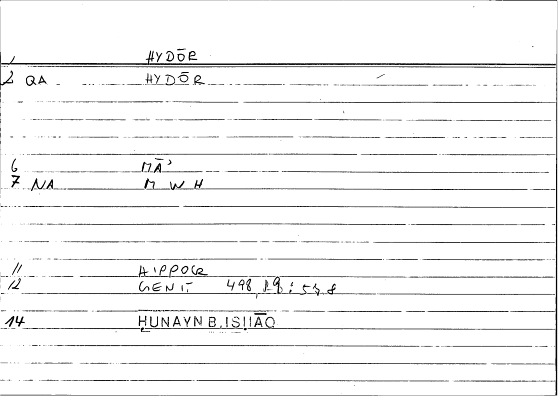 1 HYDŌR
2 QA HYDŌR
6 MĀʾ
7 NA M W H
11 HIPPOCR
12 GENIT 498,19: 54,8
14 ḤUNAYN B. ISḤĀQ